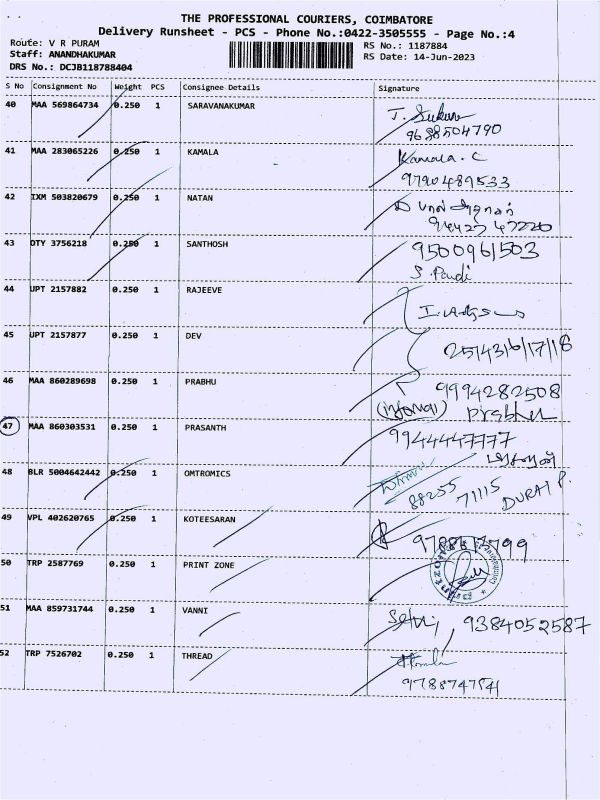 THE PROFESSIONAL COURIERS, COIMBATORE
Delivery Runsheet - PCS - Phone No.:0422-3505555 - Page No.:4
Route: V R PURAM
RS No.: 1187884
Staff: ANANDHAKUMAR
RS Date: 14-Jun-2023
DRS No.: DCJB118788404
S No Consignment No Weight PCS Consignee Details Signature
40 MAA 569864734 0.250 1 SARAVANAKUMAR
9688504790
41 MAA 283065226 0.250 1 KAMALA Kamala. C
9790489533
42 IXM 503820679 0.250 1 NATAN
43 DTY 3756218 0.250 1 SANTHOSH 9500961503
S. Pandi
44 UPT 2157882 0.250 1 RAJEEVE
45 UPT 2157877 0.250 1 DEV
46 MAA 860289698 0.250 1 PRABHU 9994282508
Prabhu
47 MAA 860303531 0.250 1 PRASANTH 9944447777
48 BLR 5004642442 0.250 1 OMTROMICS
88255 71115 DURAI P.
49 VPL 402620765 0.250 1 KOTEESARAN
50 TRP 2587769 0.250 1 PRINT ZONE
51 MAA 859731744 0.250 1 VANNI Selvi, 9384052587
52 TRP 7526702 0.250 1 THREAD